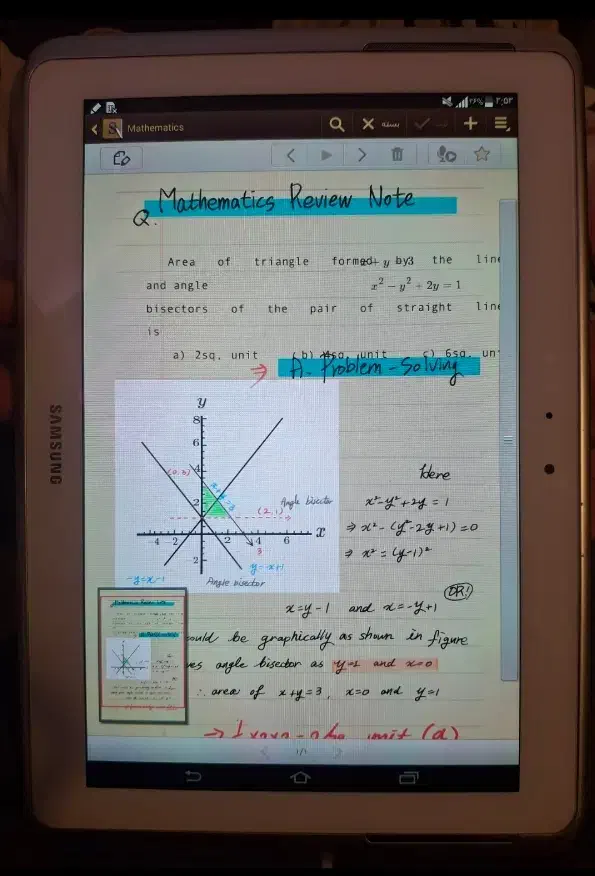 ۲:۵۳
Mathematics
Mathematics Review Note
Q.
Area of triangle formed by the line
x + y = 3
and angle
x² - y² + 2y = 1
bisectors of the pair of straight line
is
a) 2sq. unit b) unit c) 6sq. un
⇒ A. Problem-Solving
y
8
6
4
2
-2
4 2 2 4 6 x
(0,3)
x+y=3
Angle bisector
(2,1)
3
-y=x-1
y=-x+1
Angle bisector
Here
x²-y²+2y = 1
⇒ x²-(y²-2y+1)=0
⇒ x² = (y-1)²
OR!
x=y-1 and x=-y+1
ould be graphically as shown in figure
es angle bisector as y=1 and x=0
∴ area of x+y=3, x=0 and y=1
unit (a)
1/1
SAMSUNG